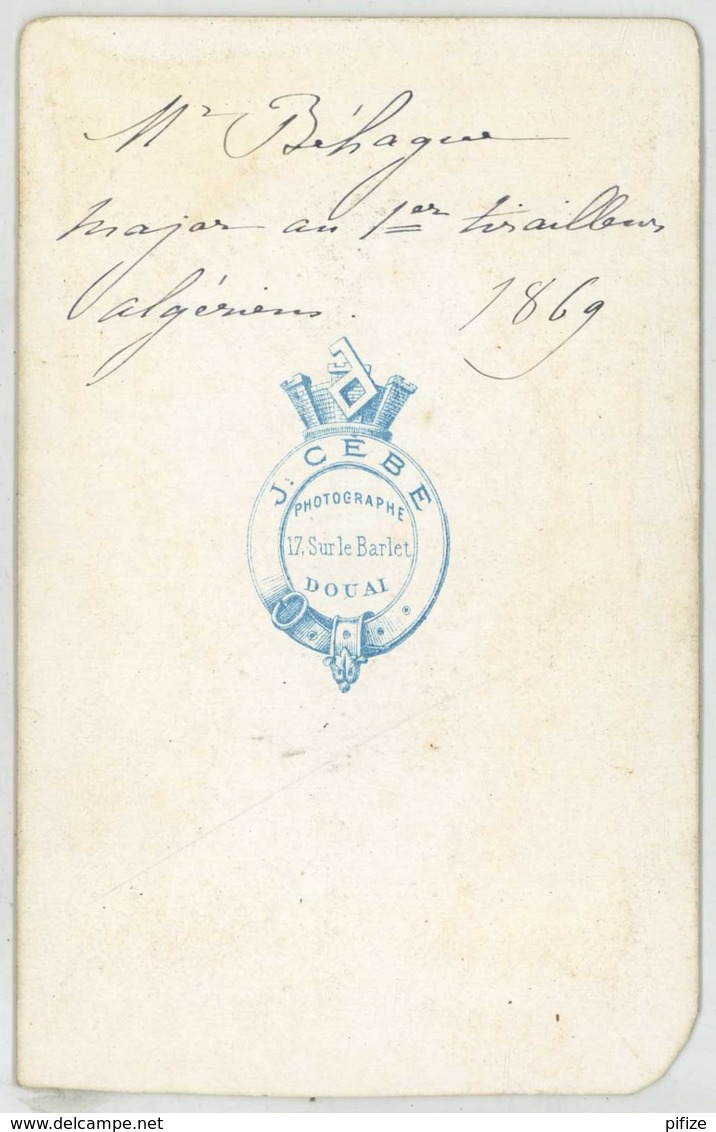 Mr Béhague
major au 1er tirailleurs
algériens. 1869
J. CÈBE
PHOTOGRAPHE
17, Sur le Barlet
DOUAI
www.delcampe.com
pifize